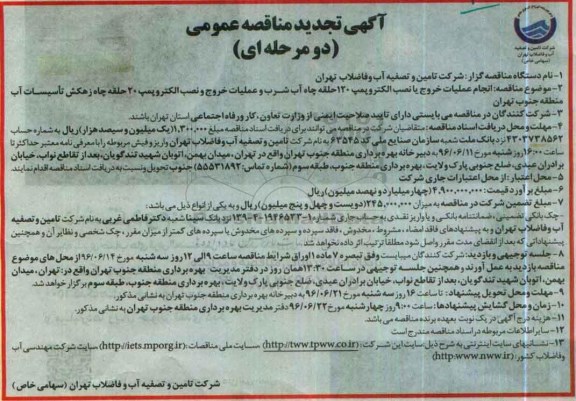 شرکت تامین و تصفیه
آب و فاضلاب تهران
(سهامی خاص)
آگهی تجدید مناقصه عمومی
(دو مرحله ای)
۱- نام دستگاه مناقصه گزار: شرکت تامین و تصفیه آب و فاضلاب تهران
۲- موضوع مناقصه: انجام عملیات خروج یا نصب الکتروپمپ ۱۲۰ حلقه چاه آب شرب و عملیات خروج و نصب الکتروپمپ ۲۰ حلقه چاه زهکش تأسیسات آب
منطقه جنوب تهران
۳- شرکت کنندگان در مناقصه می بایستی دارای تایید صلاحیت ایمنی از وزارت تعاون، کار و رفاه اجتماعی استان تهران باشند.
۴- مهلت و محل دریافت اسناد مناقصه: متقاضیان شرکت در مناقصه می توانند برای دریافت اسناد مناقصه مبلغ ۱,۳۰۰,۰۰۰ (یک میلیون و سیصد هزار) ریال به شماره حساب
۴۳۰۳۷۳۸۵۶۲ نزد بانک ملت شعبه سازمان صنایع ملی کد ۶۳۵۴۵ به نام شرکت تامین و تصفیه آب و فاضلاب تهران واریز و فیش مربوطه را با معرفی نامه معتبر حداکثر تا
ساعت ۱۶:۰۰ روز شنبه مورخ ۹۶/۰۶/۱۱ به دبیرخانه بهره برداری منطقه جنوب تهران واقع در تهران، میدان بهمن، اتوبان شهید تندگویان، بعد از تقاطع نواب، خیابان
برادران عبدی، ضلع جنوبی پارک ولایت، بهره برداری منطقه جنوب تهران، طبقه سوم (شماره تماس: ۵۵۵۳۱۸۹۲) جنوب تحویل و نسبت به دریافت اسناد مناقصه اقدام نمایند.
۵- محل اعتبار: از محل اعتبارات جاری شرکت
۶- مبلغ برآورد قیمت: ۴,۹۰۰,۰۰۰,۰۰۰ (چهار میلیارد و نهصد میلیون) ریال.
۷- مبلغ تضمین شرکت در مناقصه به میزان ۲۴۵,۰۰۰,۰۰۰ (دویست و چهل و پنج میلیون) ریال و به یکی از انواع ذیل می باشد:
- چک بانکی تضمینی، ضمانتنامه بانکی و یا واریز نقدی به حساب جاری شماره ۱۳۹-۴-۱۹۴۶۵۳۳-۱ نزد بانک سینا شعبه دکتر فاطمی غربی به نام شرکت تامین و تصفیه
آب و فاضلاب تهران و به پیشنهادهای فاقد امضاء، مشروط، مخدوش، فاقد سپرده و سپرده های مخدوش یا سپرده های کمتر از میزان مقرر، چک شخصی و نظایر آن و همچنین
پیشنهاداتی که بعد از انقضای مدت مقرر واصل شود مطلقا ترتیب اثر داده نخواهد شد.
۸- جلسه توجیهی و بازدید: شرکت کنندگان میبایست وفق تبصره ۷ ماده ۱ اوراق شرایط مناقصه ساعت ۹ الی ۱۲ روز سه شنبه مورخ ۹۶/۰۶/۱۴ از محل های موضوع
مناقصه بازدید به عمل آورند و همچنین جلسه توجیهی در ساعت ۱۳:۳۰ همان روز در دفتر مدیریت بهره برداری منطقه جنوب تهران واقع در: تهران، میدان
بهمن، اتوبان شهید تندگویان، بعد از تقاطع نواب، خیابان برادران عبدی، ضلع جنوبی پارک ولایت، بهره برداری منطقه جنوب، طبقه سوم برگزار خواهد شد.
۹- مهلت و محل تحویل پیشنهادها: تا ساعت ۱۶ روز سه شنبه مورخ ۹۶/۰۶/۲۱ به دبیرخانه بهره برداری منطقه جنوب تهران به نشانی مذکور.
۱۰- زمان و محل گشایش پیشنهادها: ساعت ۹:۰۰ روز چهار شنبه مورخ ۹۶/۰۶/۲۲ دفتر مدیریت بهره برداری منطقه جنوب تهران به نشانی مذکور.
۱۱- هزینه درج آگهی در یک نوبت به عهده برنده مناقصه می باشد.
۱۲- سایر اطلاعات مربوطه در اسناد مناقصه مندرج است
۱۳- نشانیهای سایت اینترنتی به شرح ذیل: سایت این شرکت: (http://tww.tpww.co.ir) سایت ملی مناقصات: (http://iets.mporg.ir) سایت شرکت مهندسی آب
و فاضلاب کشور: (http://www.nww.ir)
شرکت تامین و تصفیه آب و فاضلاب تهران (سهامی خاص)